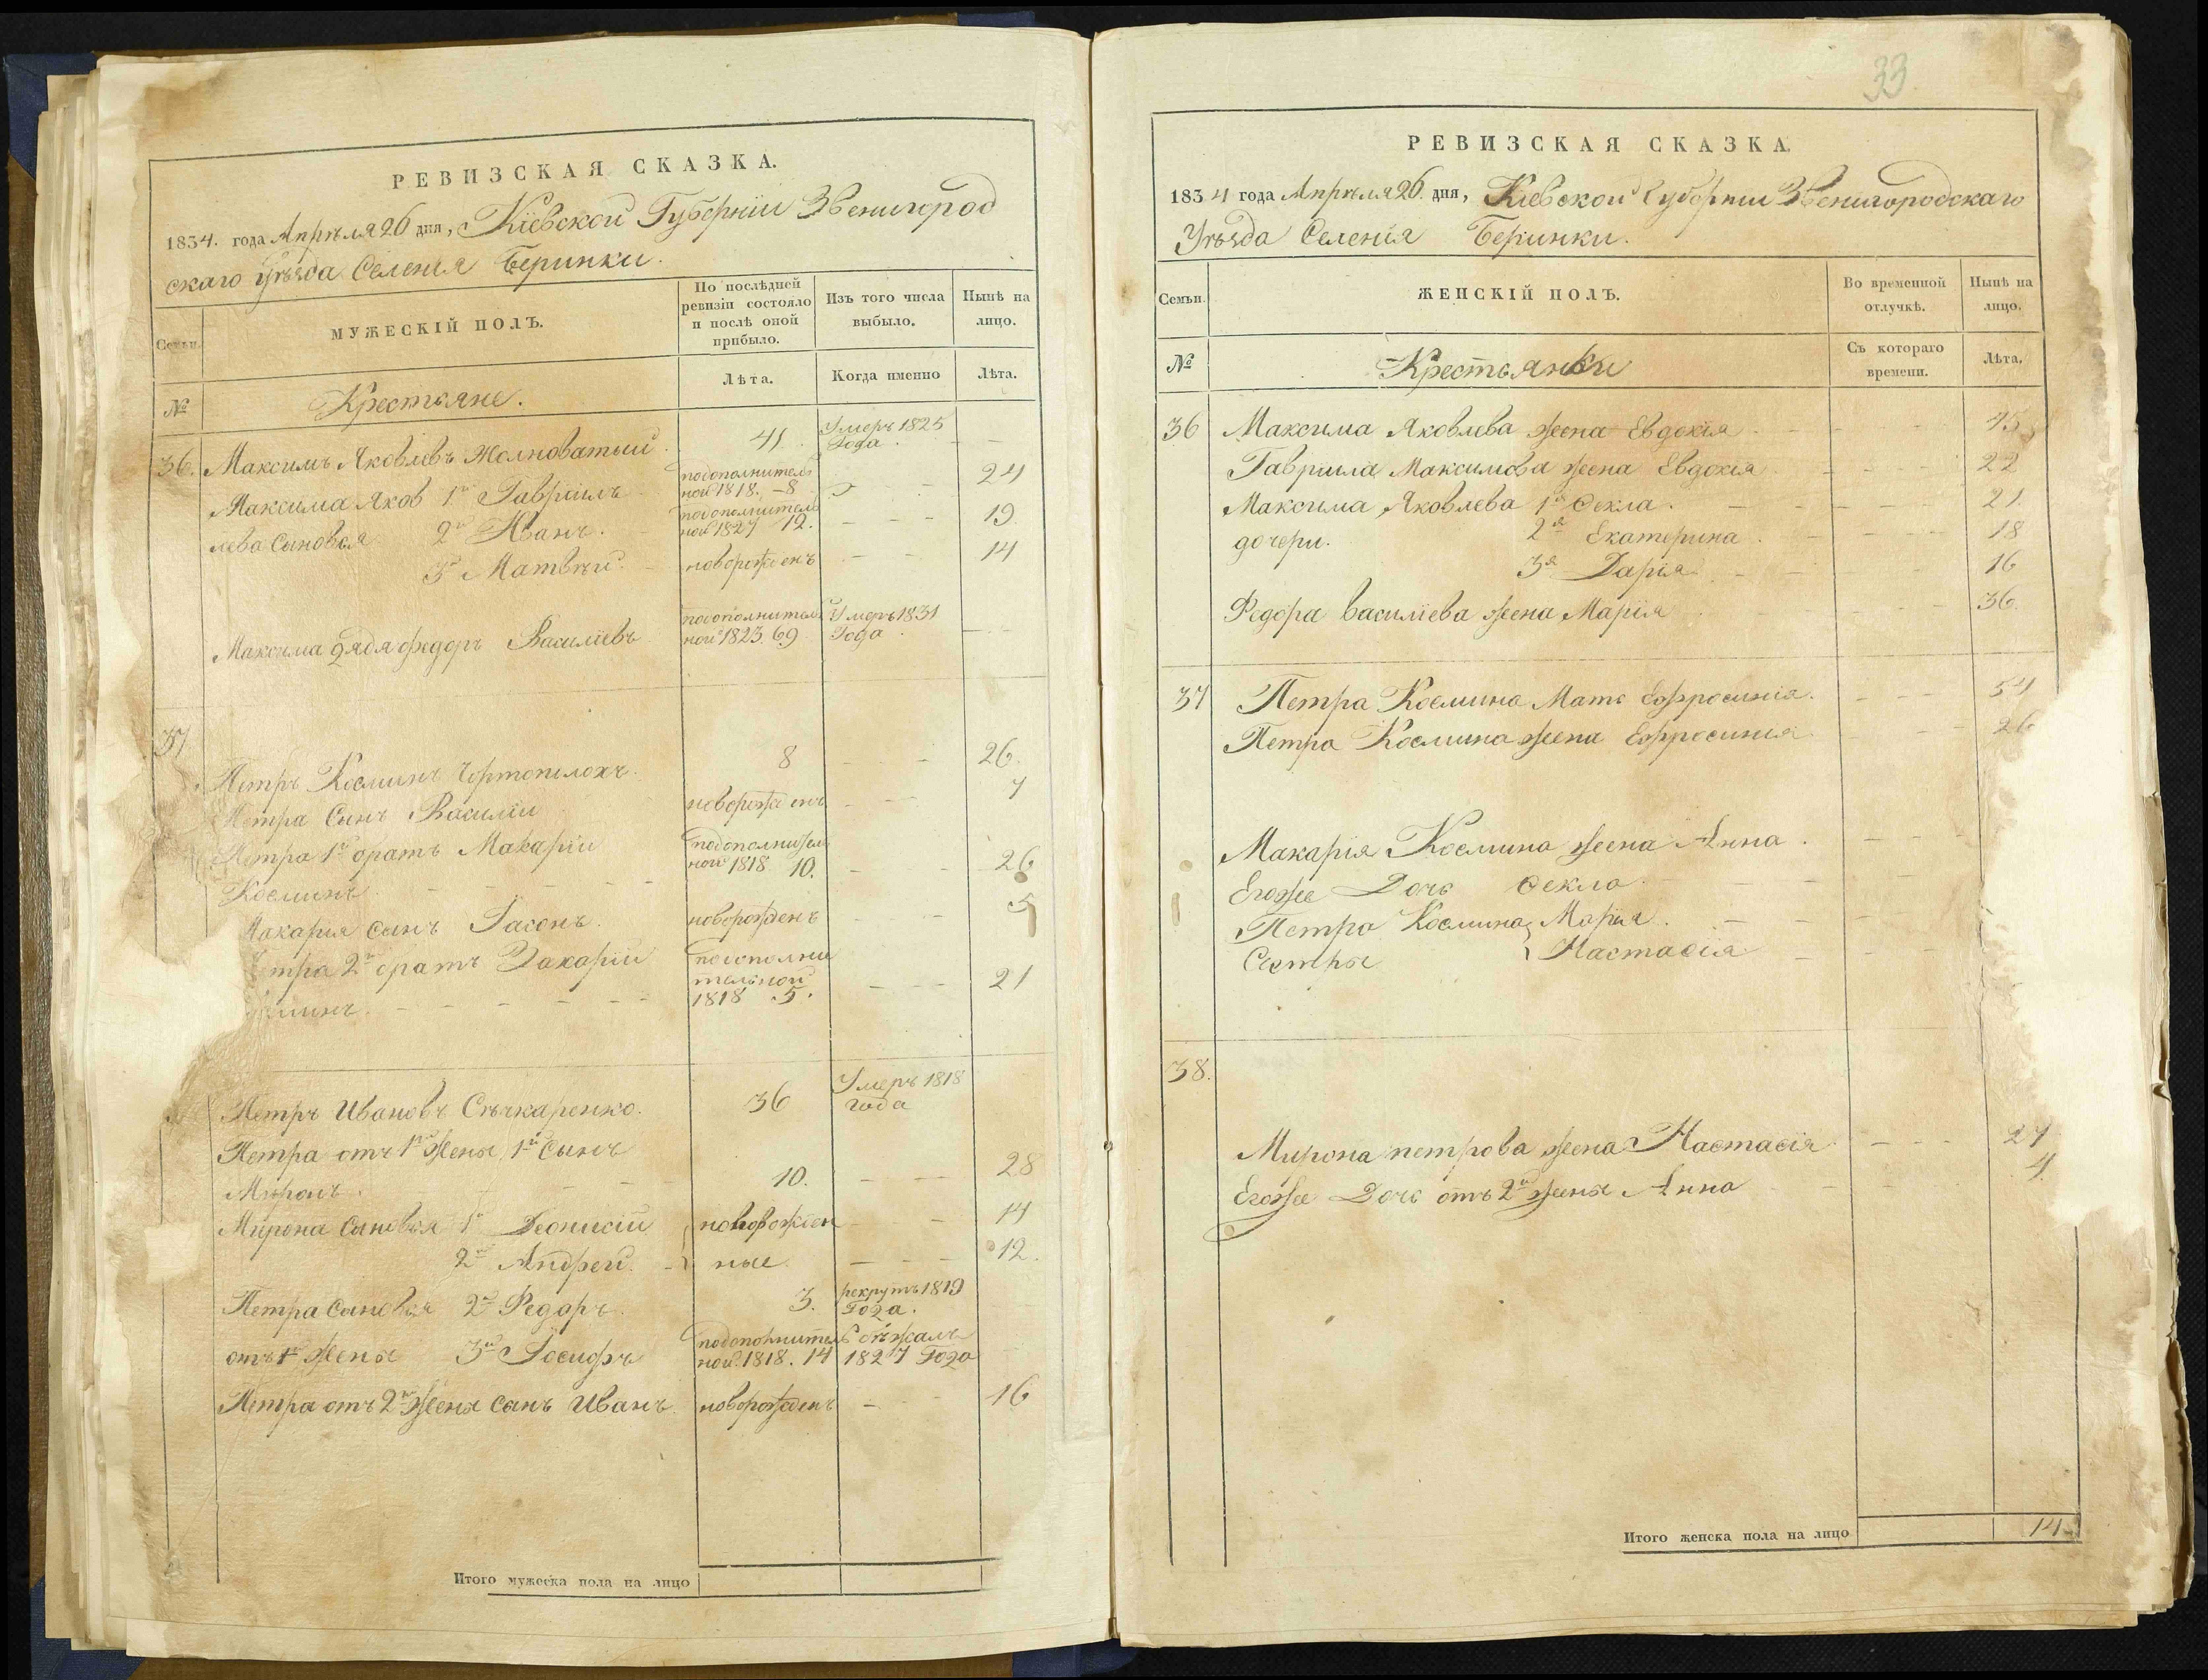 РЕВИЗСКАЯ СКАЗКА.
1834. года Апрѣля 26 дня, Кіевской Губерніи Звенигород
скаго Уѣзда Селенія Беринки.
Семьи.
МУЖЕСКІЙ ПОЛЪ.
По послѣдней ревизіи состояло и послѣ оной прибыло.
Изъ того числа выбыло.
Нынѣ на лицо.
№
Крестьяне.
Лѣта.
Когда именно
Лѣта.
36. Максимъ Яковлевъ Жолноватый 41. Умеръ 1825 Года. - -
Максима Яков 1й Гавріилъ подополнитель ной 1818. - 8 - - 24
лева Сыновья 2й Иванъ. подополнитель ной 1827 12. - - - 19
3й Матвѣй. новорожденъ - - 14
Максима дядя Федоръ Василіевъ подополнитель ной 1823. 69 Умеръ 1831 Года. - -
37
Петръ Косминъ Чортополохъ. 8 - - - 26.
Петра Сынъ Василій новорожденъ - - - 7
Петра 1й братъ Макарій подополнитель ной 1818 10. - - 26
Косминъ - - - -
Макарія сынъ Іасонъ. новорожденъ - - - 5
тра 2й братъ Захарій подополни тельной 1818 5. - - - 21
минъ. - - - - -
Петръ Ивановъ Сѣчкаренко. 36 Умеръ 1818 года
Петра отъ 1й Жены 1й Сынъ
Миронъ. - - 10. - - - 28
Мирона Сыновья 1й Деонисій новорожден - - 14
2й Андрей. - ные - - - 12.
Петра Сыновья 2й Федоръ. 3. рекрутъ 1819 Года.
отъ 1й Жены 3й Іосифъ подополнитель ной 1818. 14 бѣжалъ 1827 Года
Петра отъ 2й Жены Сынъ Иванъ новорожденъ - - 16
Итого мужеска пола на лицо
33
РЕВИЗСКАЯ СКАЗКА.
1834 года Апрѣля 26. дня, Кіевской Губерніи Звенигородскаго
Уѣзда Селенія Беринки.
Семьи.
ЖЕНСКІЙ ПОЛЪ.
Во временной отлучкѣ.
Нынѣ на лицо.
№
Крестьянки
Съ котораго времени.
Лѣта.
36 Максима Яковлева жена Евдокія - - - 45
Гавріила Максимова жена Евдокія - - - 22
Максима Яковлева 1я Фекла. - - - - 21.
дочери. 2я Екатерина. - - - 18
3я Дарія - - - 16
Федора Василіева жена Марія - - - 36.
37 Петра Космина Мать Ефросинія. - - - 54
Петра Космина жена Ефросинія - - - 26
Макарія Космина жена Анна. - - -
Егоже Дочь Фекла. - - -
Петра Космина Марія. - - -
Сестры Настасія - - -
38.
Мирона петрова жена Настасія - - - 27
Егоже Дочь отъ 2й жены Анна - - - 4.
Итого женска пола на лицо 14